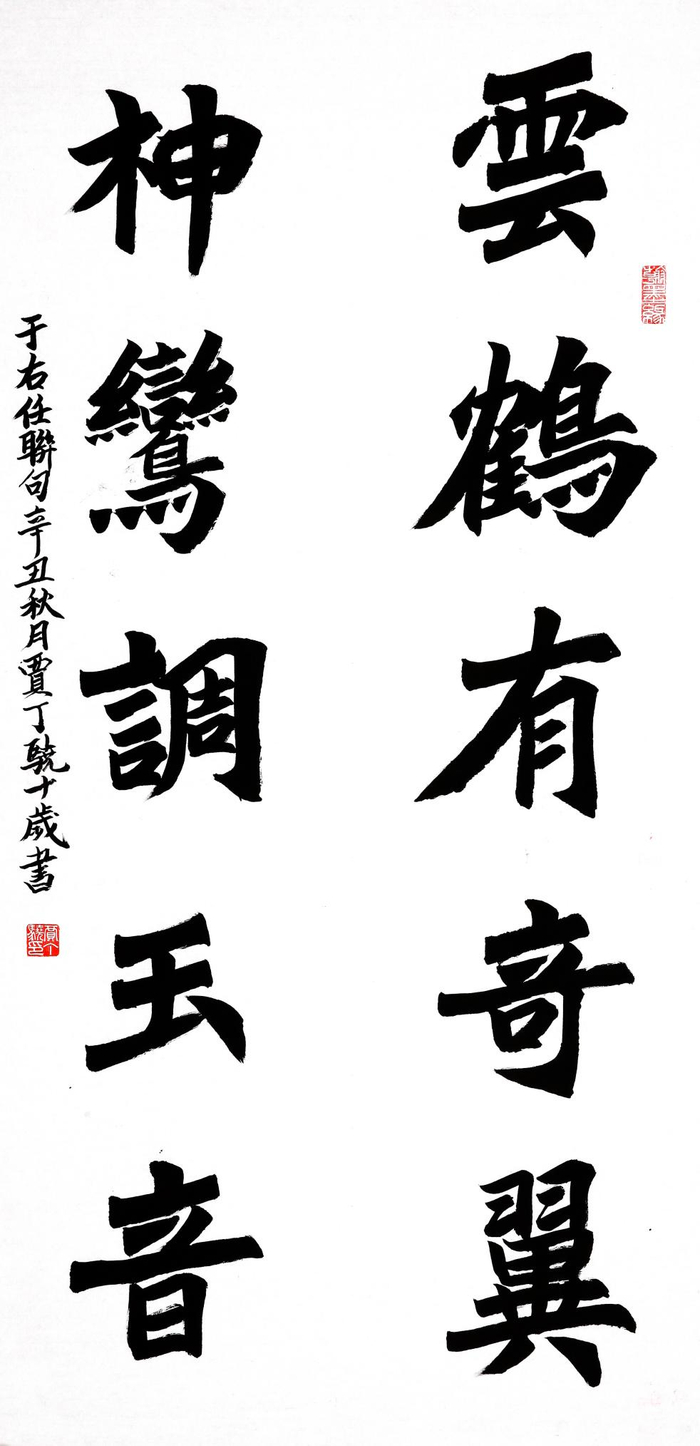 雲鶴有奇翼
神鸞調玉音
于右任聯句辛丑秋月賈丁兢十歲書